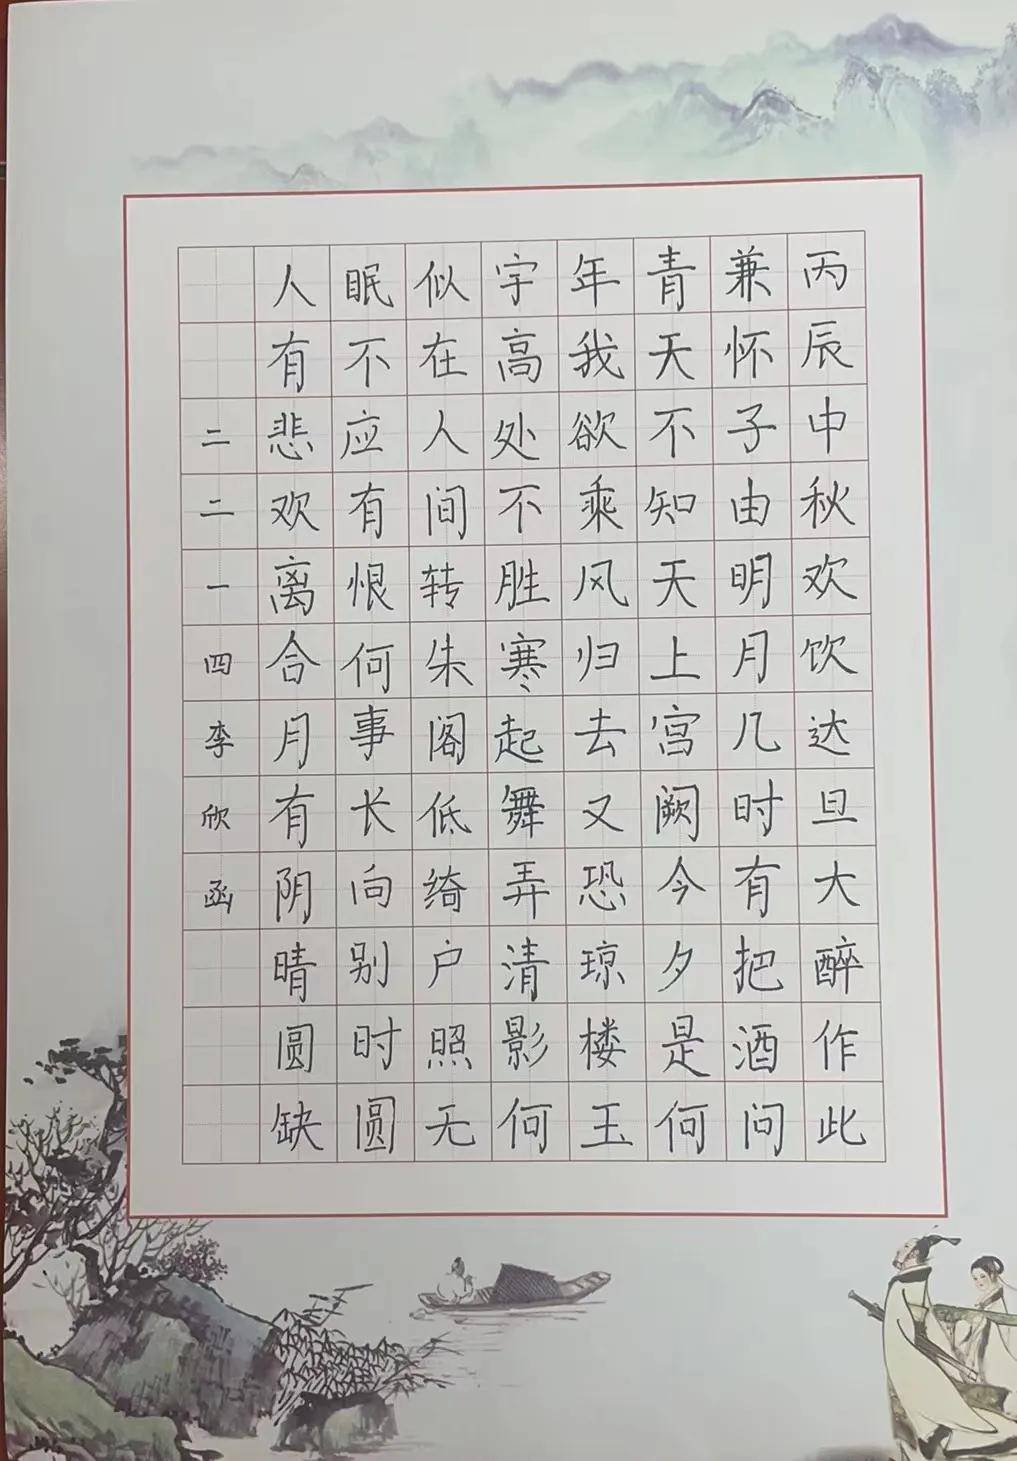 丙辰中秋欢饮达旦大醉作此
兼怀子由明月几时有把酒问
青天不知天上宫阙今夕是何
年我欲乘风归去又恐琼楼玉
宇高处不胜寒起舞弄清影何
似在人间转朱阁低绮户照无
眠不应有恨何事长向别时圆
人有悲欢离合月有阴晴圆缺
二二一四李欣函